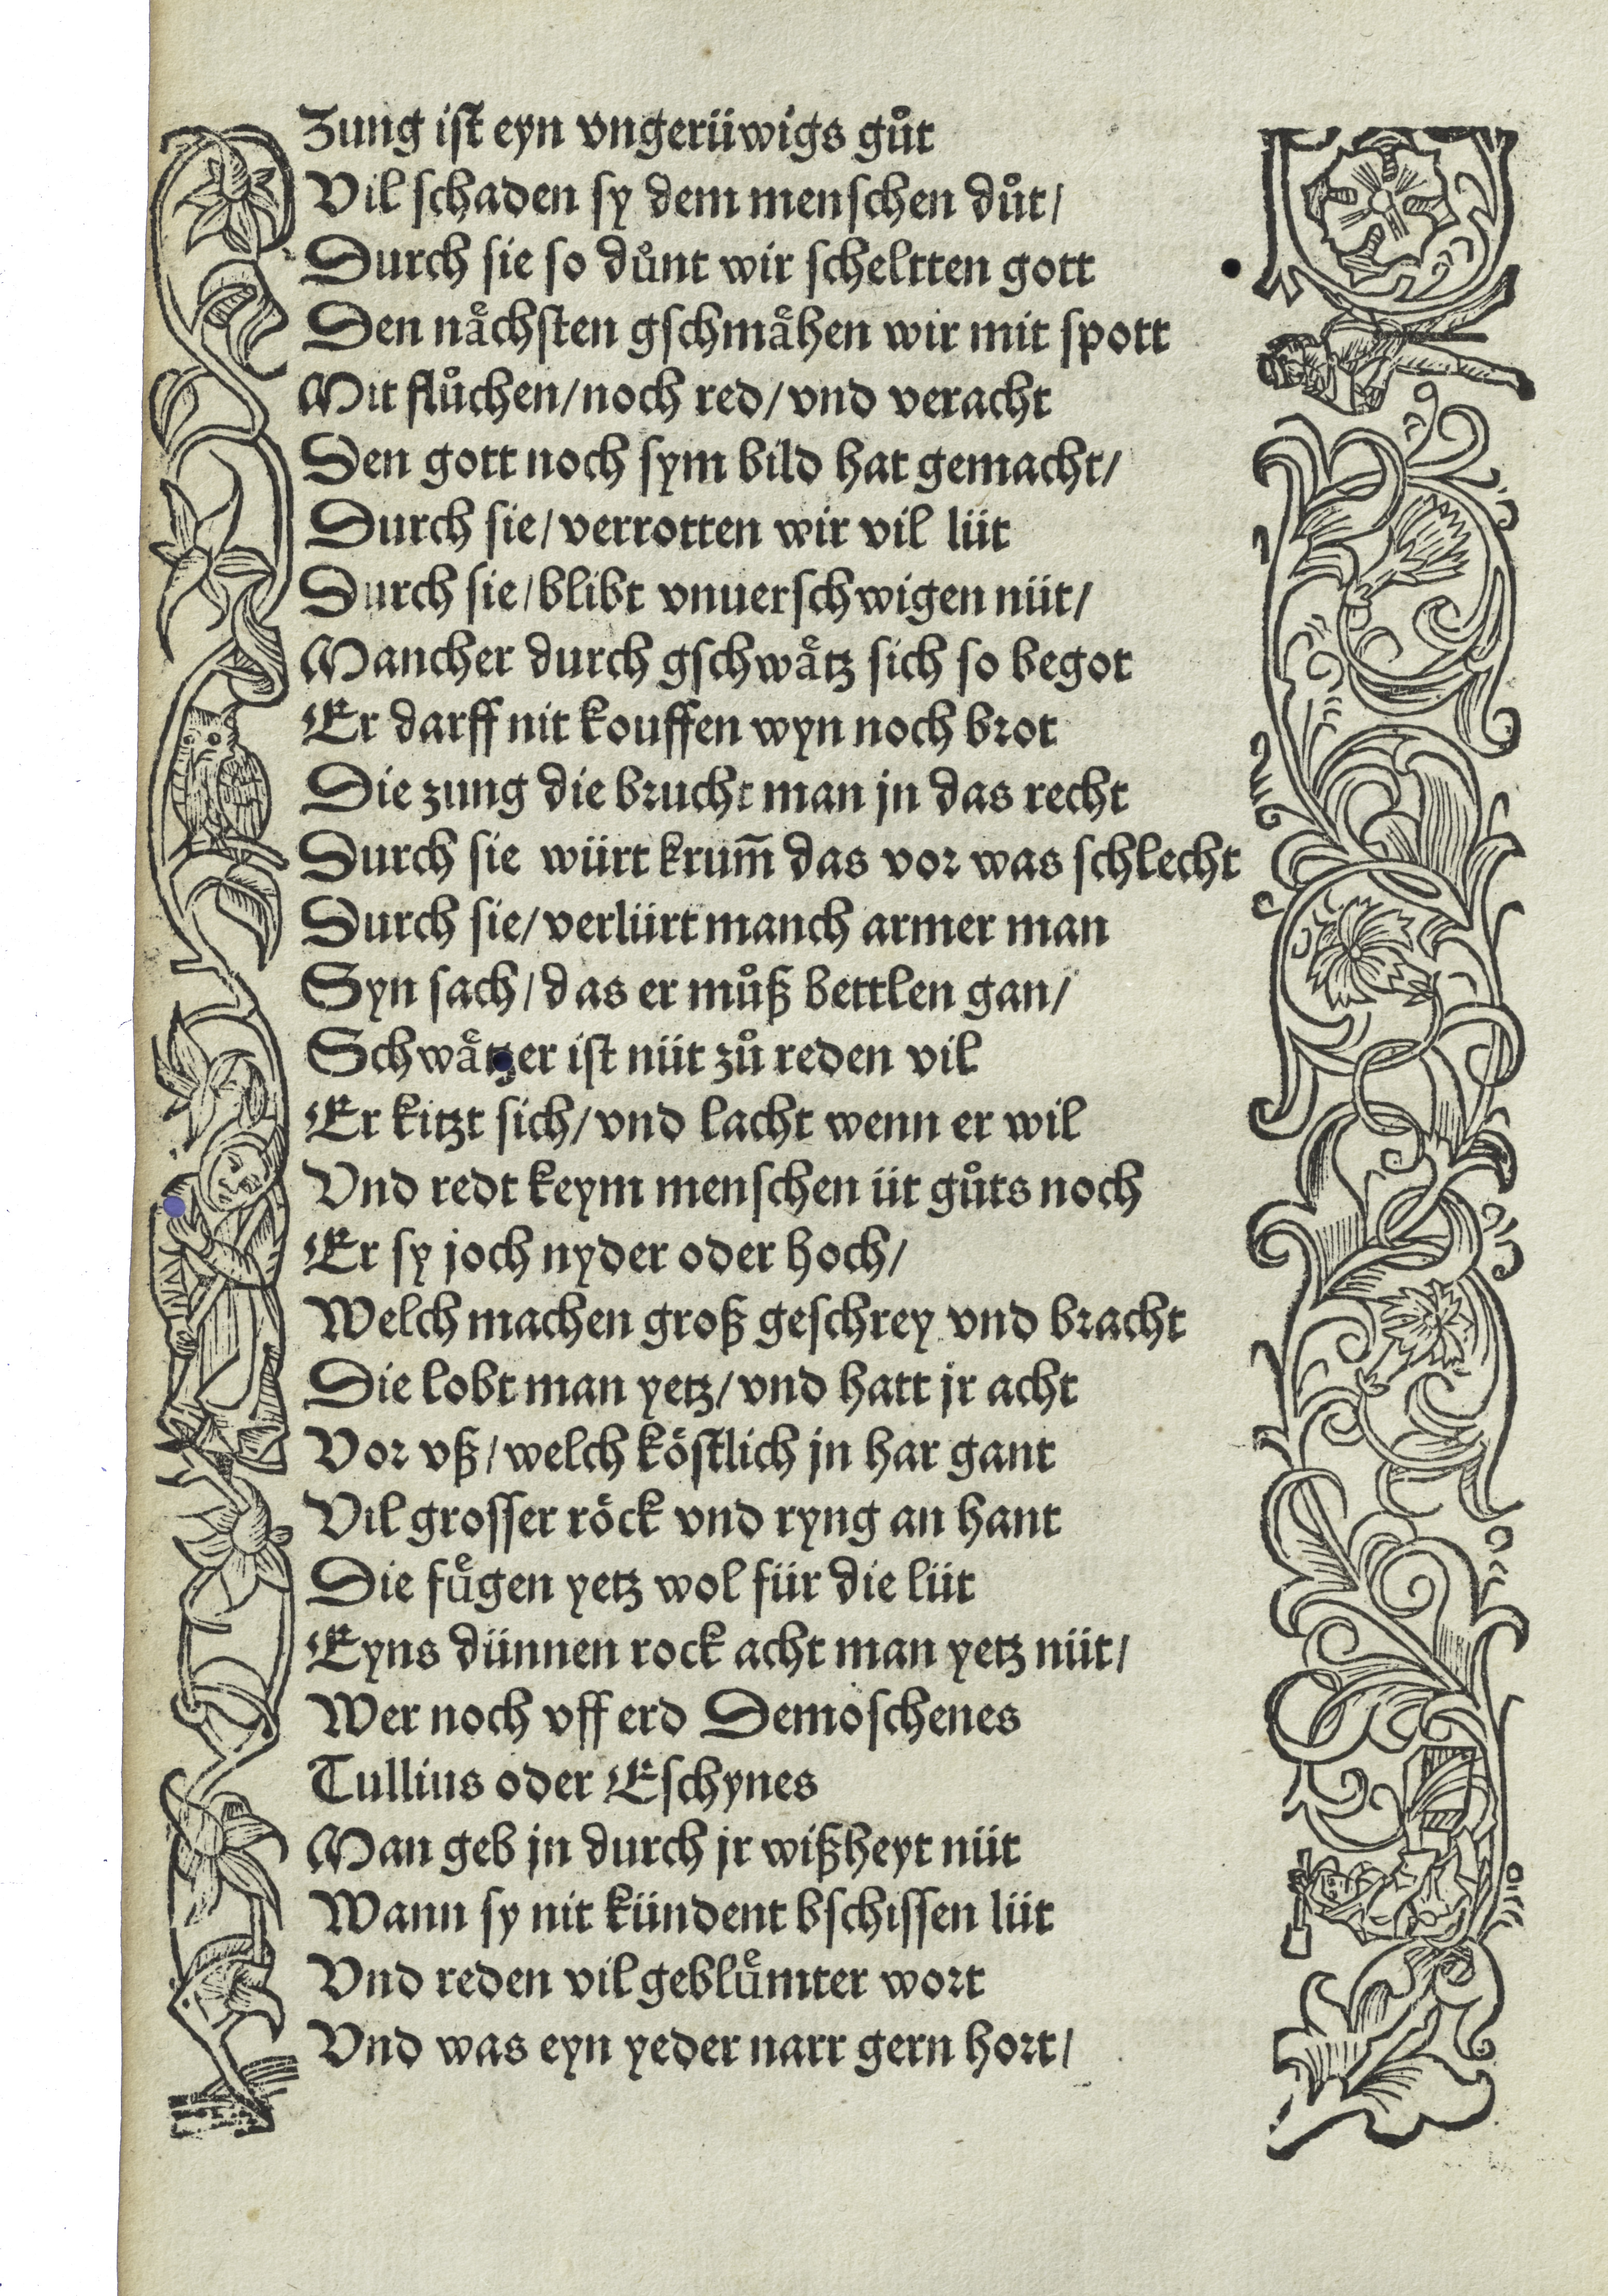 Zung iſt eyn vngerüwigs gůt
Vil ſchaden ſy dem menſchen důt/
Durch ſie ſo důnt wir ſcheltten gott
Den naͤchſten gſchmaͤhen wir mit ſpott
Mit flůchen/noch red/vnd veracht
Den gott noch ſym bild hat gemacht/
Durch ſie/verrotten wir vil lüt
Durch ſie/blibt vnuerſchwigen nüt/
Mancher durch gſchwaͤtz ſich ſo begot
Er darff nit kouffen wyn noch brot
Die zung die brucht man jn das recht
Durch ſie würt krum̄ das vor was ſchlecht
Durch ſie/verlürt manch armer man
Syn ſach/das er můß bettlen gan/
Schwaͤtzer iſt nüt zů reden vil
Er kitzt ſich/vnd lacht wenn er wil
Vnd redt keym menſchen üt gůts noch
Er ſy joch nyder oder hoch/
Welch machen groß geſchrey vnd bracht
Die lobt man yetz/vnd hatt jr acht
Vor vß/welch köſtlich jn har gant
Vil groſſer röck vnd ryng an hant
Die fuͤgen yetz wol für die lüt
Eyns dünnen rock acht man yetz nüt/
Wer noch vff erd Demoſchenes
Tullius oder Eſchynes
Man geb jn durch jr wißheyt nüt
Wann ſy nit kündent bſchiſſen lüt
Vnd reden vil gebluͤmter wort
Vnd was eyn yeder narr gern hort/